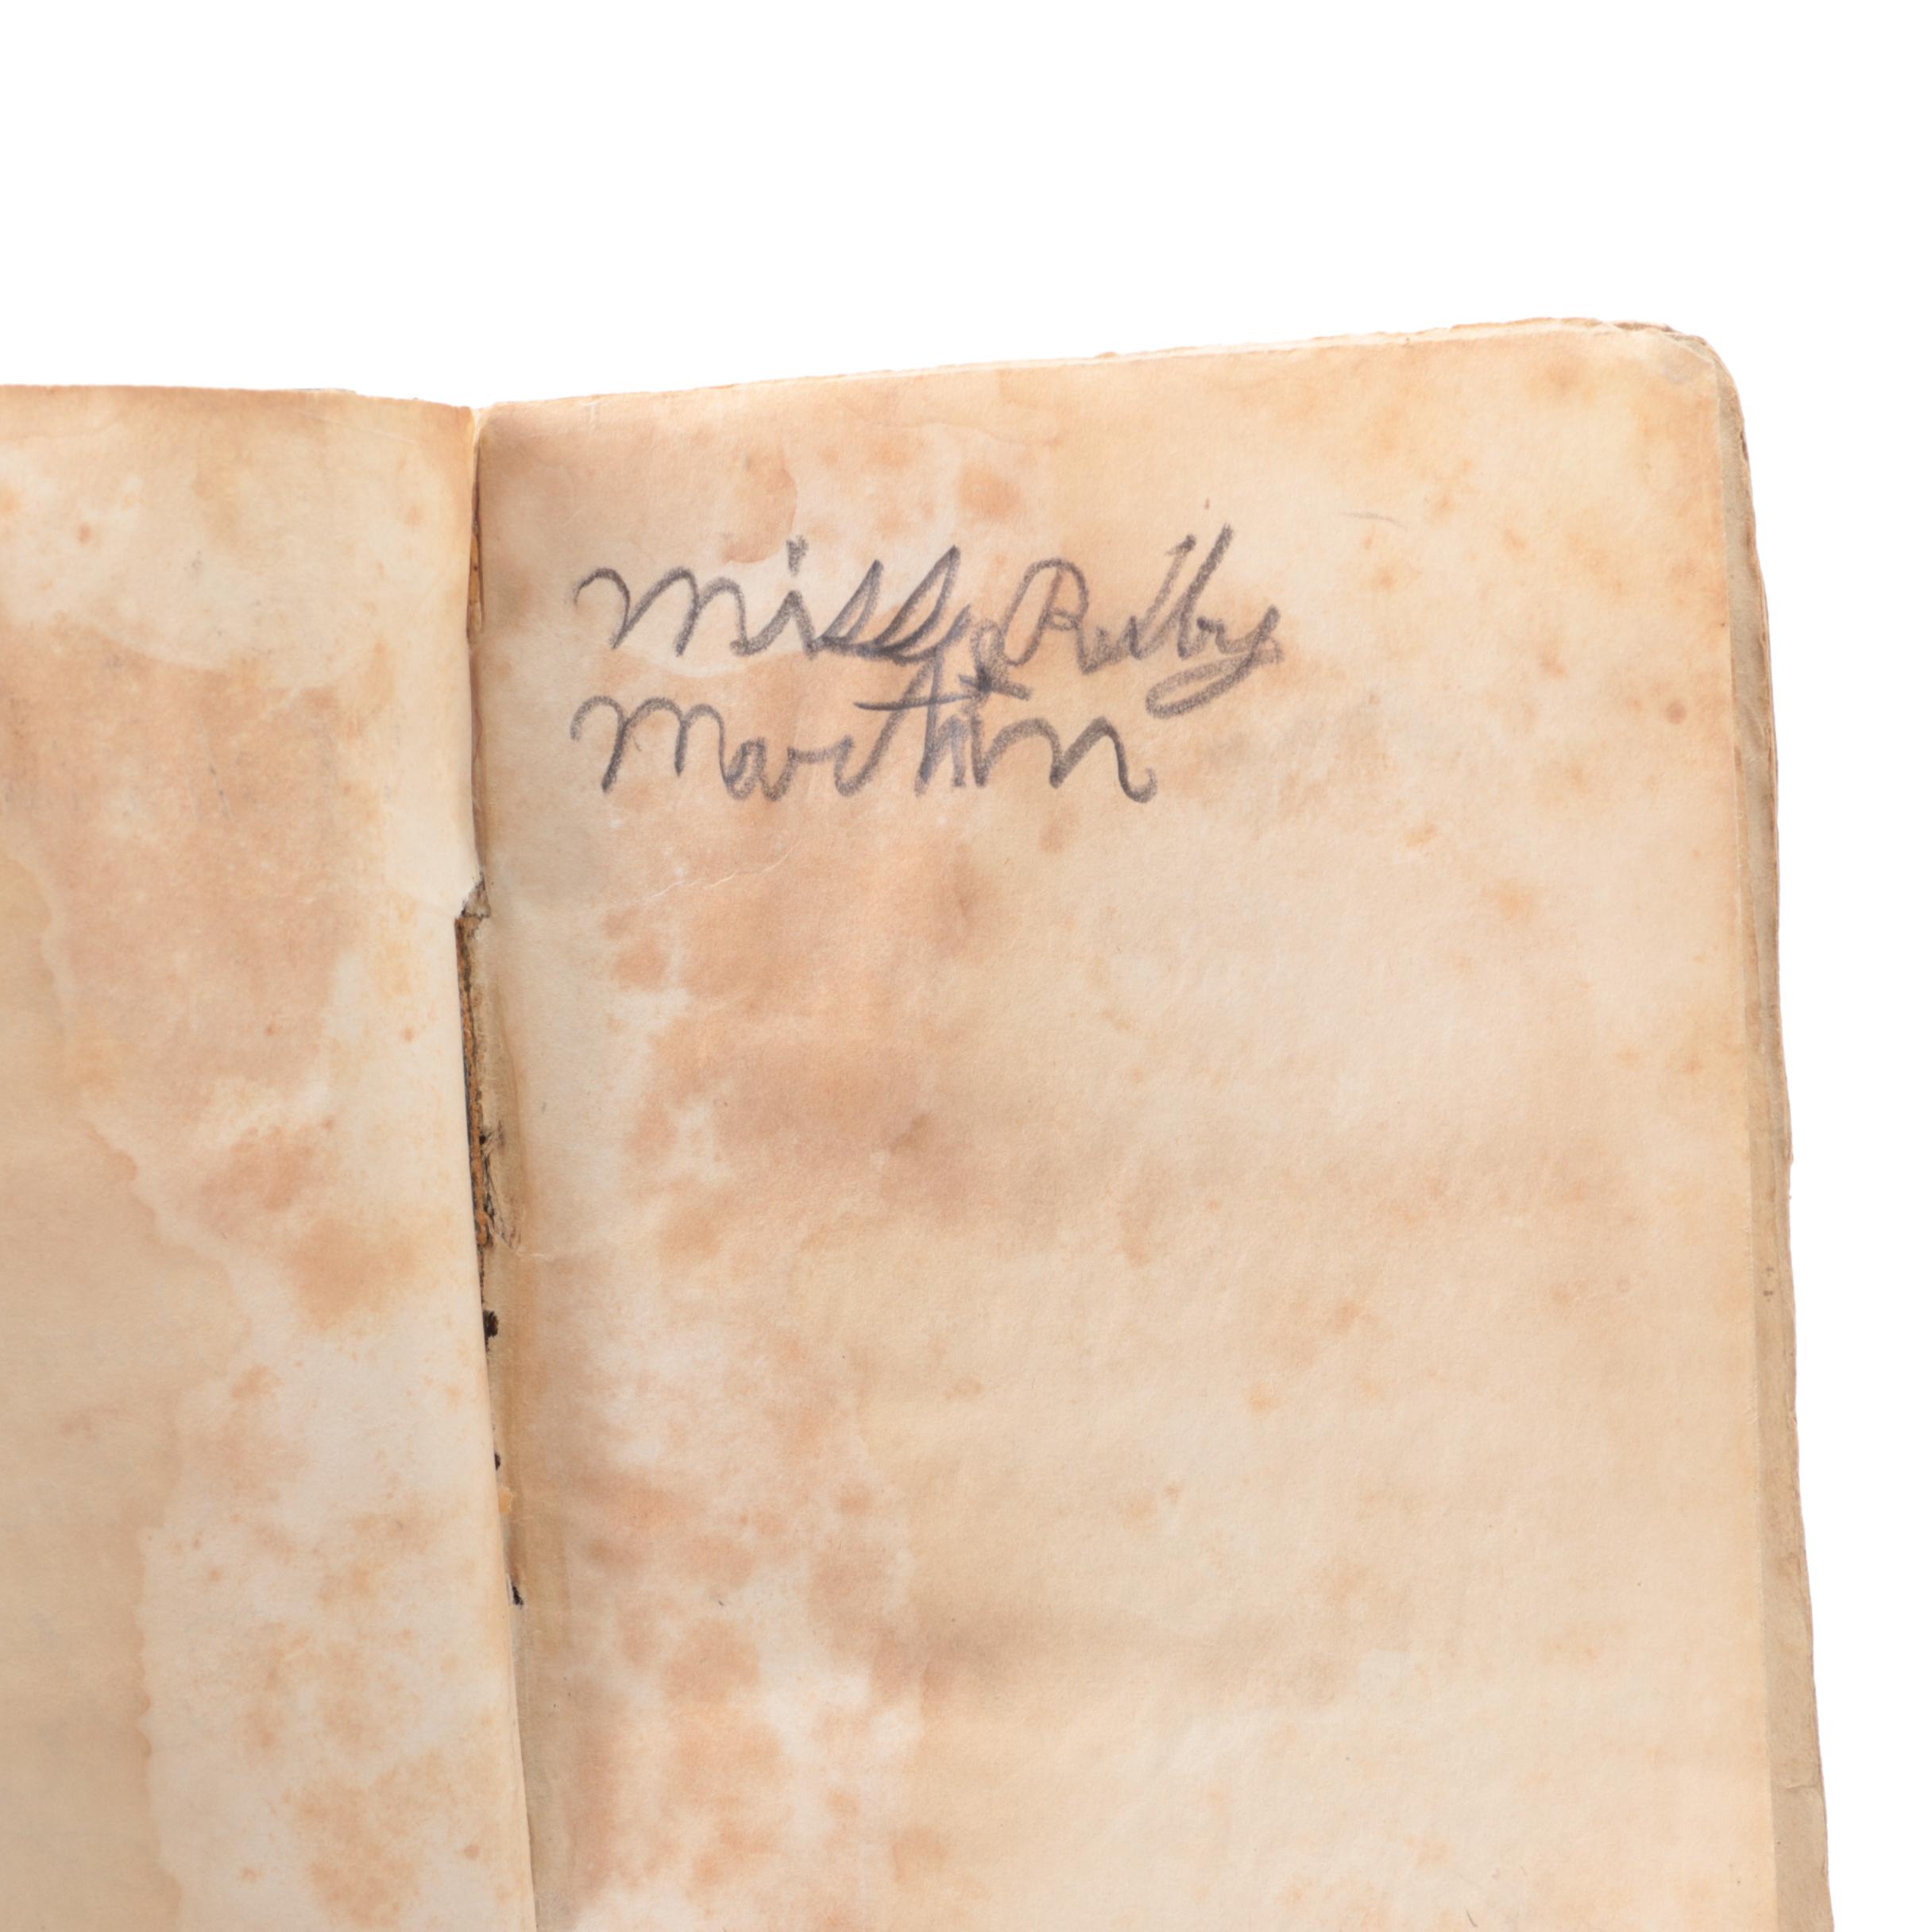 Miss Ruby
Martin